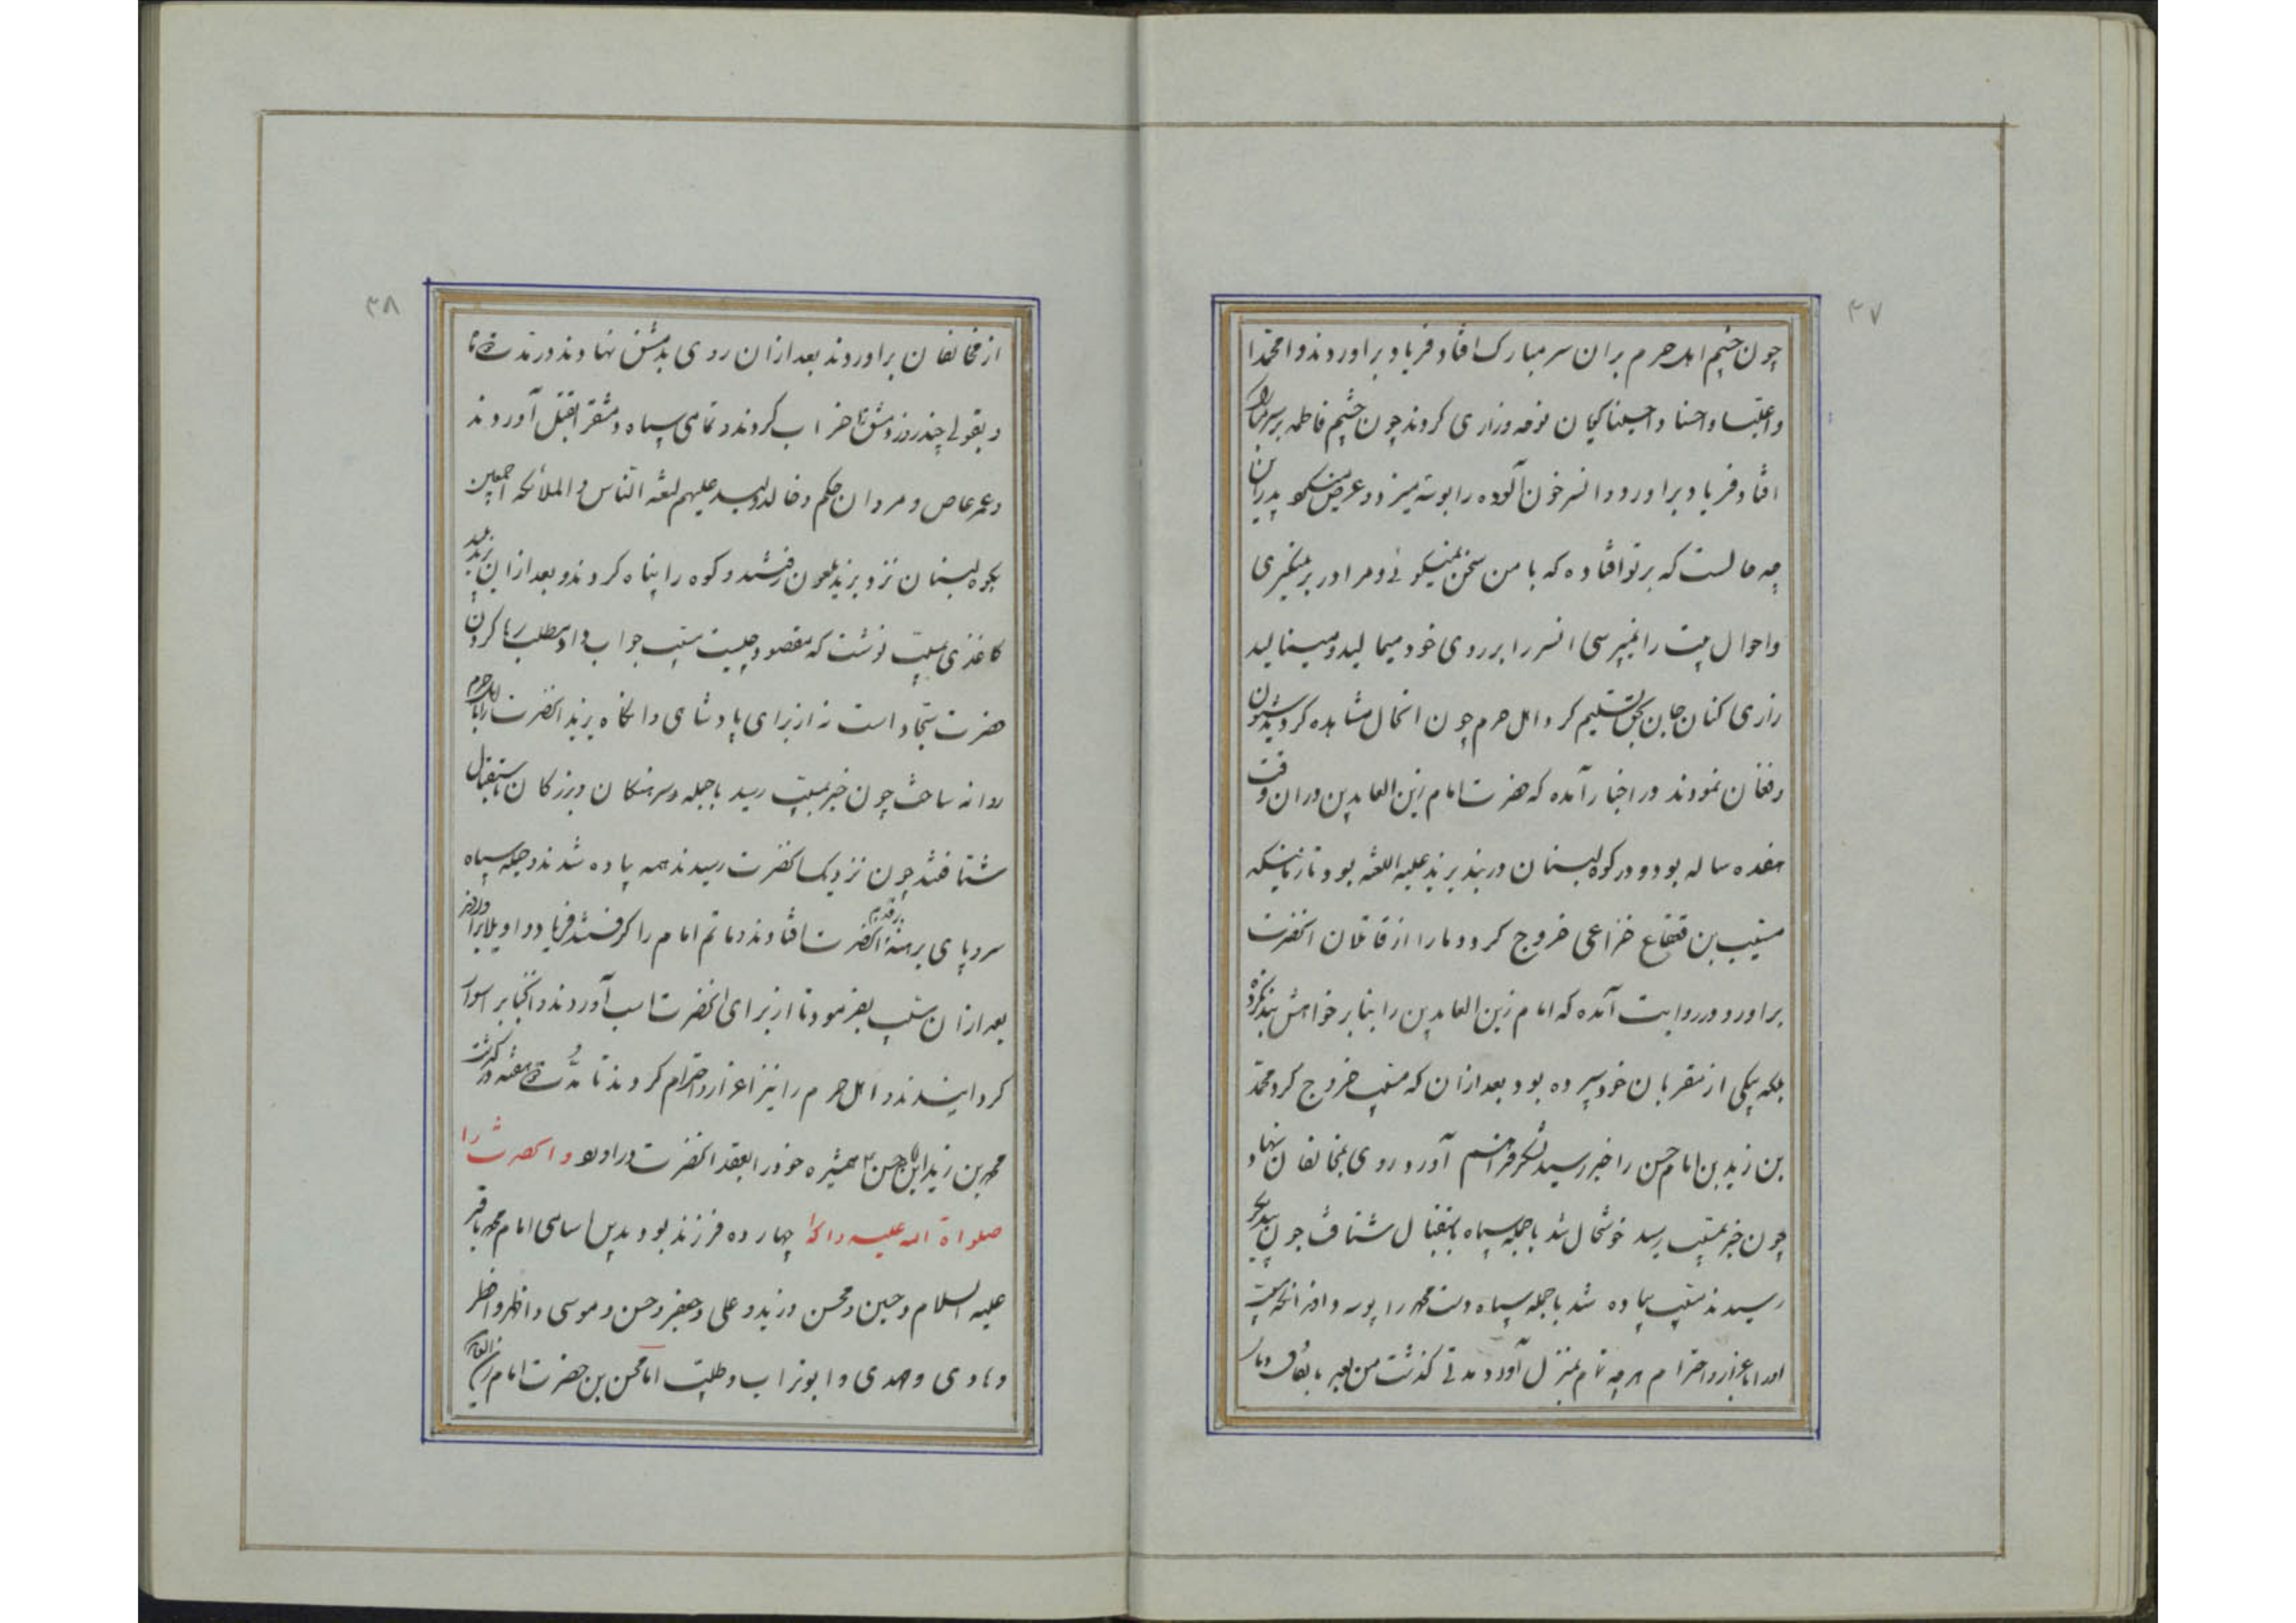 ۳۷
چون چشم اهل حرم بران سر مبارک افتاد فریاد براوردند وامحمدا
واعلیا واحسنا واحسینا کنان نوحه وزاری کردند چون چشم فاطمه برسر
افتاد فریاد براورد وانسر خون آلوده را بوسه میزد وعرض میکرد پدرجان
چه حالست که برتو افتاده که با من سخن نمیگوئی ومرا دربر نمیگیری
واحوال را نمیپرسی انسر را برروی خود میمالید ومینالید
زاری کنان جان بحق تسلیم کرد اهل حرم چون انحال مشاهده کردند شیون
وفغان نمودند در اخبار آمده که حضرت امام زین العابدین دران وقت
هفده ساله بود ودر کوه لبنان دربند یزید علیه اللعنه بود تا زمانیکه
مسیب بن قعقاع خزاعی خروج کرد دمار از قاتلان انحضرت
براورد ودر روایت آمده که امام زین العابدین را بنابر خواهش بند نکرده
بلکه بیکی از مقربان خود سپرده بود بعد ازان که مسیب خروج کرد محمد
بن زید بن امام حسن را خبر رسید لشکر فراهم آورد وروی بمخالفان نهاد
چون خبر بمسیب رسید خوشحال شد با جمله سپاه باستقبال شتافت چون بیکدیگر
رسیدند مسیب پیاده شد با جمله سپاه دست محمد را بوسه دادند انگه مسیب
اورا باعزاز واحترام هرچه تمام بمنزل آورد مدتی گذشت من بعد باتفاق دمار
۳۸
از مخالفان براوردند بعد ازان روی بدمشق نهادند ودر مدت
وبقولی چند روز دمشق را خراب کردند وتمامی سپاه دمشق را بقتل آوردند
وعمر عاص ومروان حکم وخالد ولید علیهم لعنة الناس والملائکه اجمعین
بکوه لبنان نزد یزید ملعون رفتند وکوه را پناه کردند وبعد ازان یزید پلید
کاغذی بمسیب نوشت که مقصود چیست مسیب جواب داد مطلب رها کردن
حضرت سجاد است نه از برای پادشاهی وانگاه یزید انحضرت را با اهل حرم
روانه ساخت چون خبر بمسیب رسید با جمله سرهنگان وبزرگان باستقبال
شتافتند چون نزدیک انحضرت رسیدند همه پیاده شدند وجمله سپاه
سر وپای برهنه برقدم انحضرت افتادند وماتم امام را گرفتند فریاد واویلا براوردند
بعد ازان مسیب بفرمود تا از برای انحضرت اسب آوردند وانجناب را سوار
گردانیدند واهل حرم را نیز اعزاز واحترام کردند تا مدت هفته درگذشت
محمد بن زید ابن امام حسن همشیره خود را بعقد انحضرت دراورد وانحضرت را
صلواة الله علیه واله چهارده فرزند بود بدین اسامی امام محمد باقر
علیه السلام وحسین ومحسن وزید وعلی وجعفر وحسن وموسی واظهر واطهر
وهادی ومهدی وابوتراب وطلیب اما محسن بن حضرت امام زین العابدین